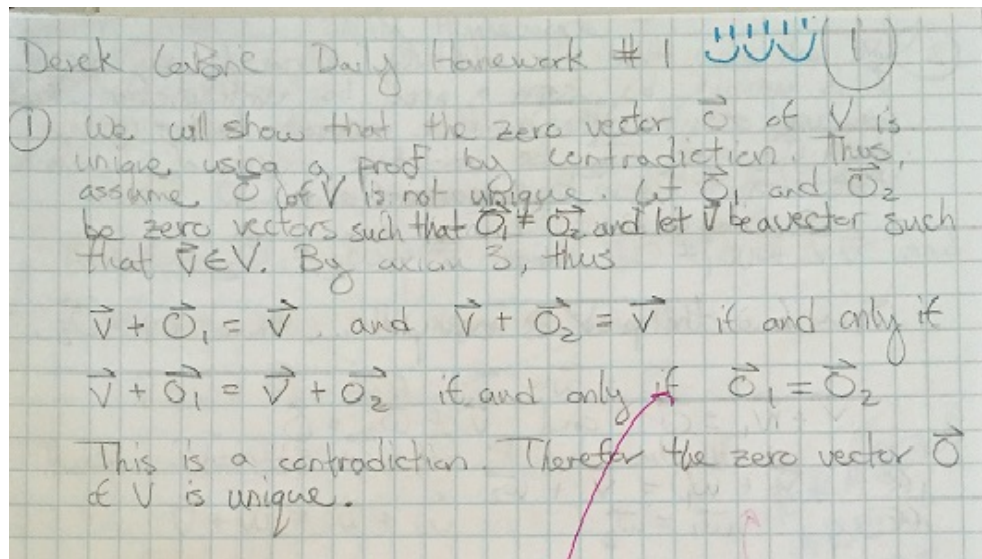 Derek Daily Homework # 1 1
① We will show that the zero vector 0⃗ of V is
unique using a proof by contradiction. Thus,
assume 0⃗ of V is not unique. Let 0⃗₁ and 0⃗₂
be zero vectors such that 0⃗₁ ≠ 0⃗₂ and let v⃗ be a vector such
that v⃗ ∈ V. By axiom 3, thus
v⃗ + 0⃗₁ = v⃗ and v⃗ + 0⃗₂ = v⃗ if and only if
v⃗ + 0⃗₁ = v⃗ + 0⃗₂ if and only if 0⃗₁ = 0⃗₂
This is a contradiction. Therefor the zero vector 0⃗
of V is unique.